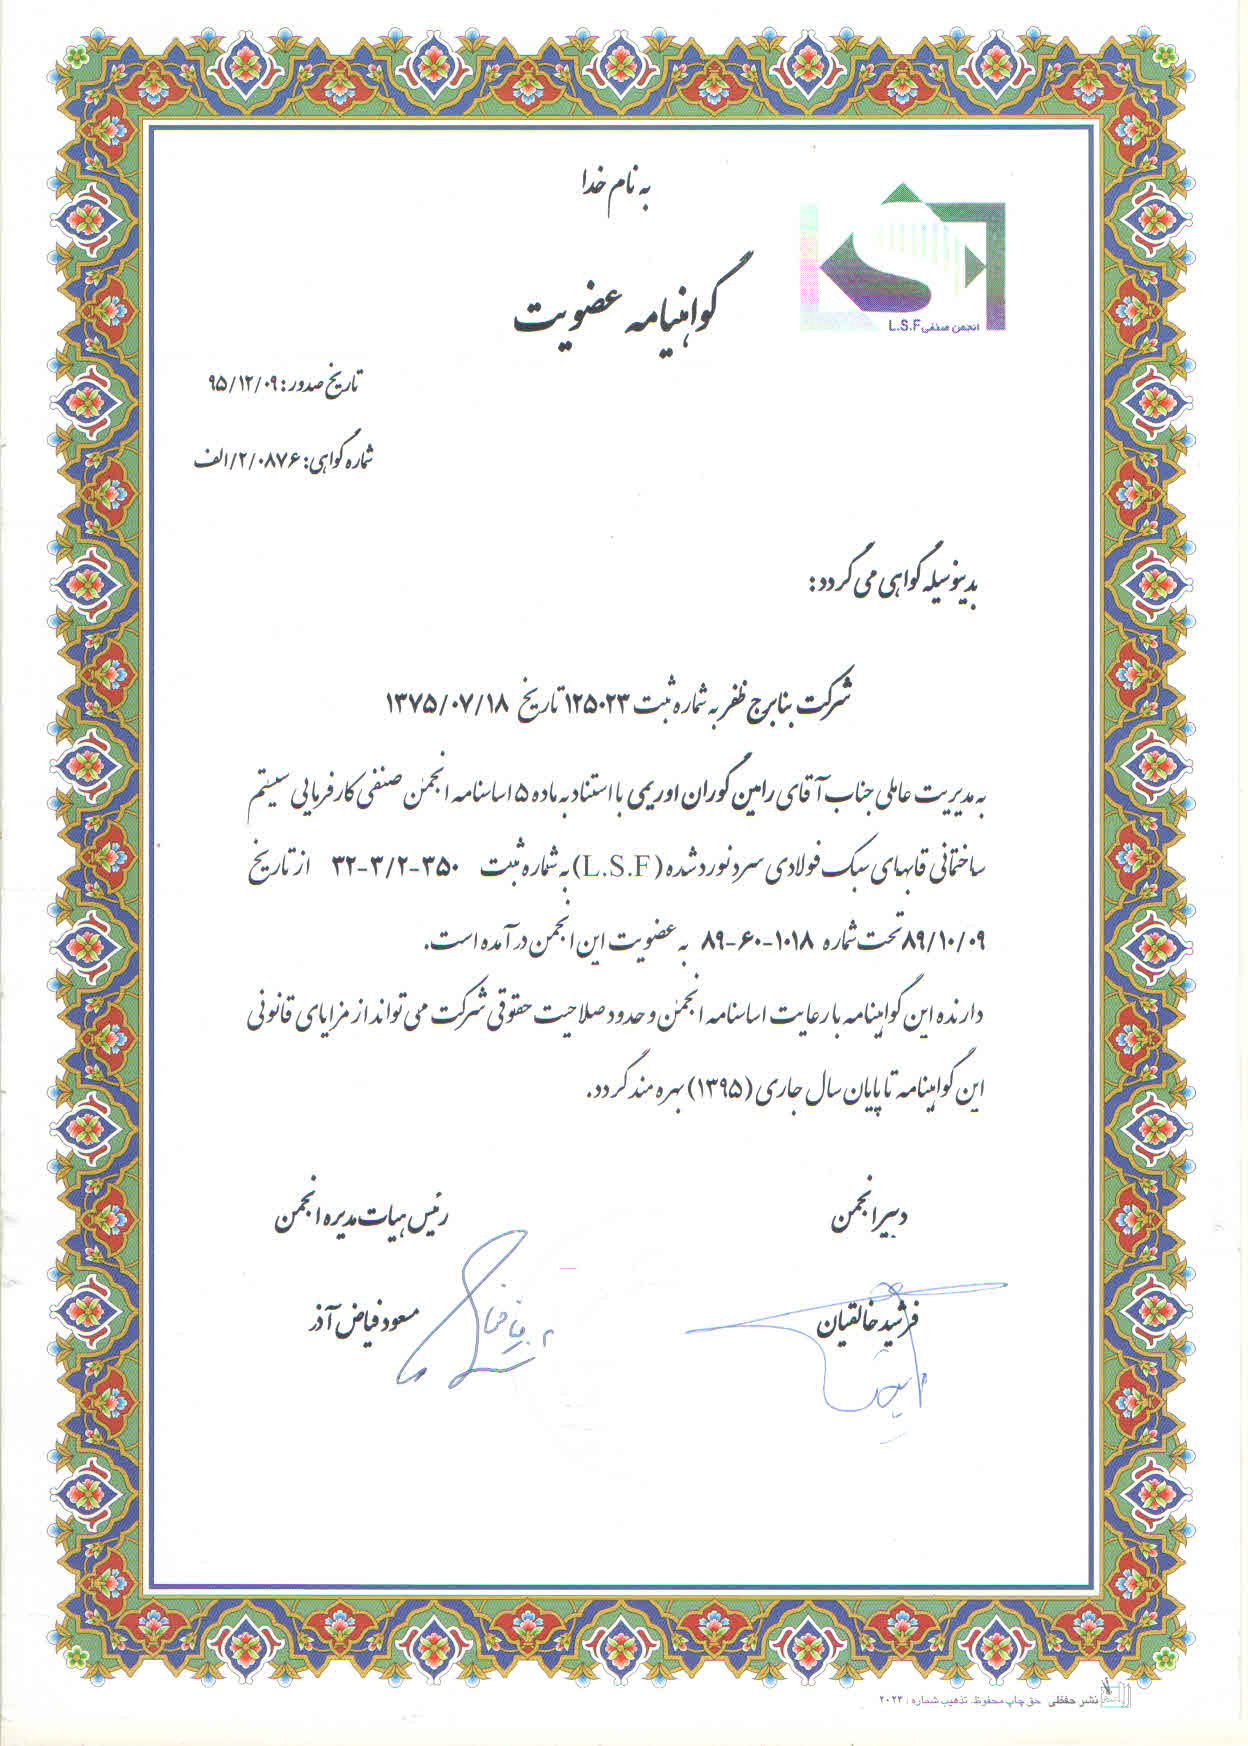 به نام خدا
انجمن صنفی L.S.F
گواهینامه عضویت
تاریخ صدور: ۹۵/۱۲/۰۹
شماره گواهی: ۲/۰۸۷۶/الف
بدینوسیله گواهی می گردد:
شرکت بنابرج ظفر به شماره ثبت ۱۲۵۰۲۳ تاریخ ۱۳۷۵/۰۷/۱۸
به مدیریت عاملی جناب آقای رامین گوران اوریمی با استناد به ماده ۵ اساسنامه انجمن صنفی کارفرمایی سیستم
ساختمانی قابهای سبک فولادی سرد نورد شده (L.S.F) به شماره ثبت ۳۵۰-۳/۲-۳۲ از تاریخ
۸۹/۱۰/۰۹ تحت شماره ۱۰۱۸-۶۰-۸۹ به عضویت این انجمن در آمده است.
دارنده این گواهینامه با رعایت اساسنامه انجمن و حدود صلاحیت حقوقی شرکت می تواند از مزایای قانونی
این گواهینامه تا پایان سال جاری (۱۳۹۵) بهره مند گردد.
دبیر انجمن
رئیس هیات مدیره انجمن
فرشید خالقیان
مسعود فیاض آذر
نشر حفظی حق چاپ محفوظ. تذهیب شماره : ۲۰۲۳